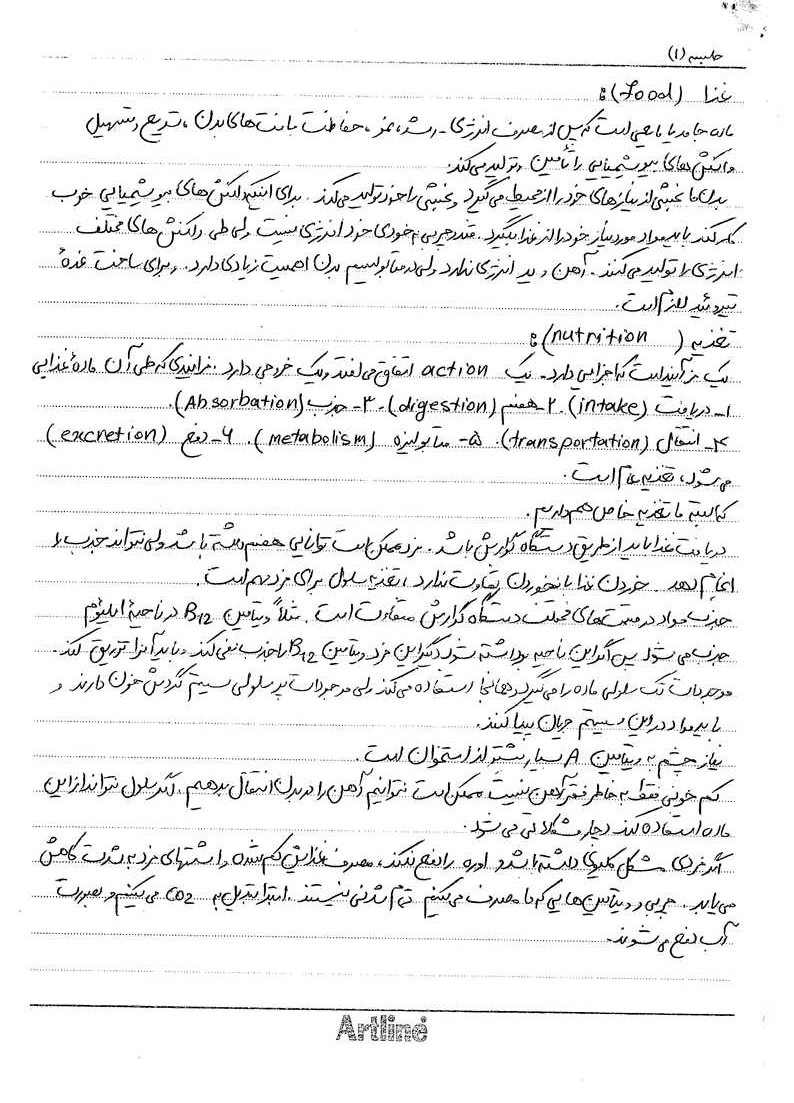 جلسه (۱)
غذا (food):
ماده جامد یا مایعی است که پس از مصرف انرژی - رشد، نمو، حفاظت بافت های بدن، تسریع و تسهیل
واکنش های بیوشیمیایی را تأمین و تولید می کند.
بدن ما بخشی از نیازهای خود را از محیط می گیرد و بخشی را خود تولید می کند. برای اینکه واکنش های بیوشیمیایی خوب
کار کند باید مواد مورد نیاز خود را از غذا بگیرد. قند و چربی به خودی خود انرژی نیست ولی طی واکنش های مختلف
انرژی را تولید می کنند. آهن و ید انرژی ندارد ولی در متابولیسم بدن اهمیت زیادی دارد. و برای ساخت غدهٔ
تیروئید لازم است.
تغذیه (nutrition):
یک فرآیند است که اجزایی دارد - یک action اتفاق می افتد و یک خروجی دارد. فرایندی که طی آن ماده غذایی
۱- دریافت (intake). ۲- هضم (digestion). ۳- جذب (Absorbation).
۴- انتقال (transportation). ۵- متابولیزه (metabolism). ۶- دفع (excretion)
می شود، تغذیه عام است.
که البته ما تغذیه خاص هم داریم.
دریافت غذا باید از طریق دستگاه گوارش باشد. فرد ممکن است توانایی هضم داشته باشد ولی نتواند جذب را
انجام دهد. خوردن غذا با نخوردن تفاوت ندارد، تغذیه سلول برای فرد مهم است.
جذب مواد در قسمت های مختلف دستگاه گوارش متفاوت است. مثلاً ویتامین B12 در ناحیهٔ ایلئوم
جذب می شود پس اگر این ناحیه برداشته شود دیگر این فرد ویتامین B12 را جذب نمی کند و باید آنرا تزریق کند.
موجودات تک سلولی ماده را می گیرند و همانجا استفاده می کند ولی موجودات پر سلولی سیستم گردش خون دارند و
باید مواد در این سیستم جریان پیدا کنند.
نیاز چشم به ویتامین A بسیار بیشتر از استخوان است.
کم خونی فقط به خاطر فقر آهن نیست ممکن است نتوانیم آهن را در بدن انتقال بدهیم. اگر سلول نتواند از این
ماده استفاده کند دچار مشکلاتی می شود.
اگر فردی مشکل کلیوی داشته باشد و اوره را دفع نکند، مصرف غذایش کم شده و اشتهای فرد به شدت کاهش
می یابد. چربی و ویتامین هایی که ما مصرف می کنیم تمام شدنی نیستند. ابتدا تبدیل به CO2 می کنیم و بصورت
آب دفع می شوند.
Artline